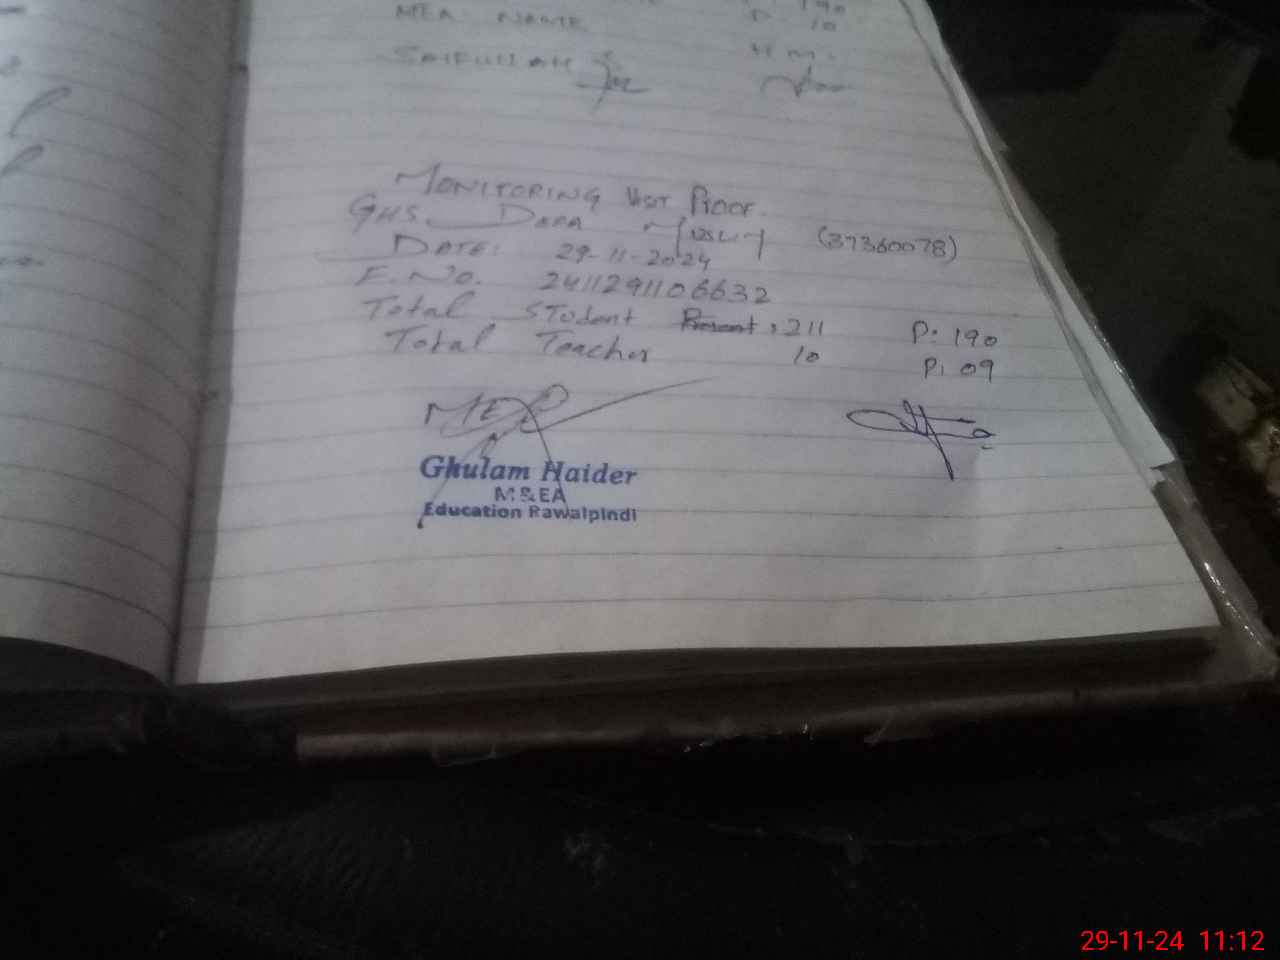 190
MEA NAME P 10
SAIFULLAH H M.
MONITORING VISIT PROOF.
GHS. DARA (37360078)
DATE: 29-11-2024
F. NO. 2411291106632
Total STudent Present: 211 P: 190
Total Teacher 10 P: 09
MEA
Ghulam Haider
M&EA
Education Rawalpindi
29-11-24 11:12